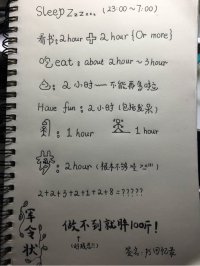 Sleep Zzz... (23:00~7:00)
看书: 2 hour 2 hour {Or more}
吃 eat: about 2 hour ~ 3 hour
: 2 小时 一 不能再多啦
Have fun: 2 小时 (包括发呆)
: 1 hour : 1 hour
: 2 hour (根本不够哇
2+2+3+2+1+2+8=?????
军令状
做不到就胖100斤!
(好残忍!!)
签名: